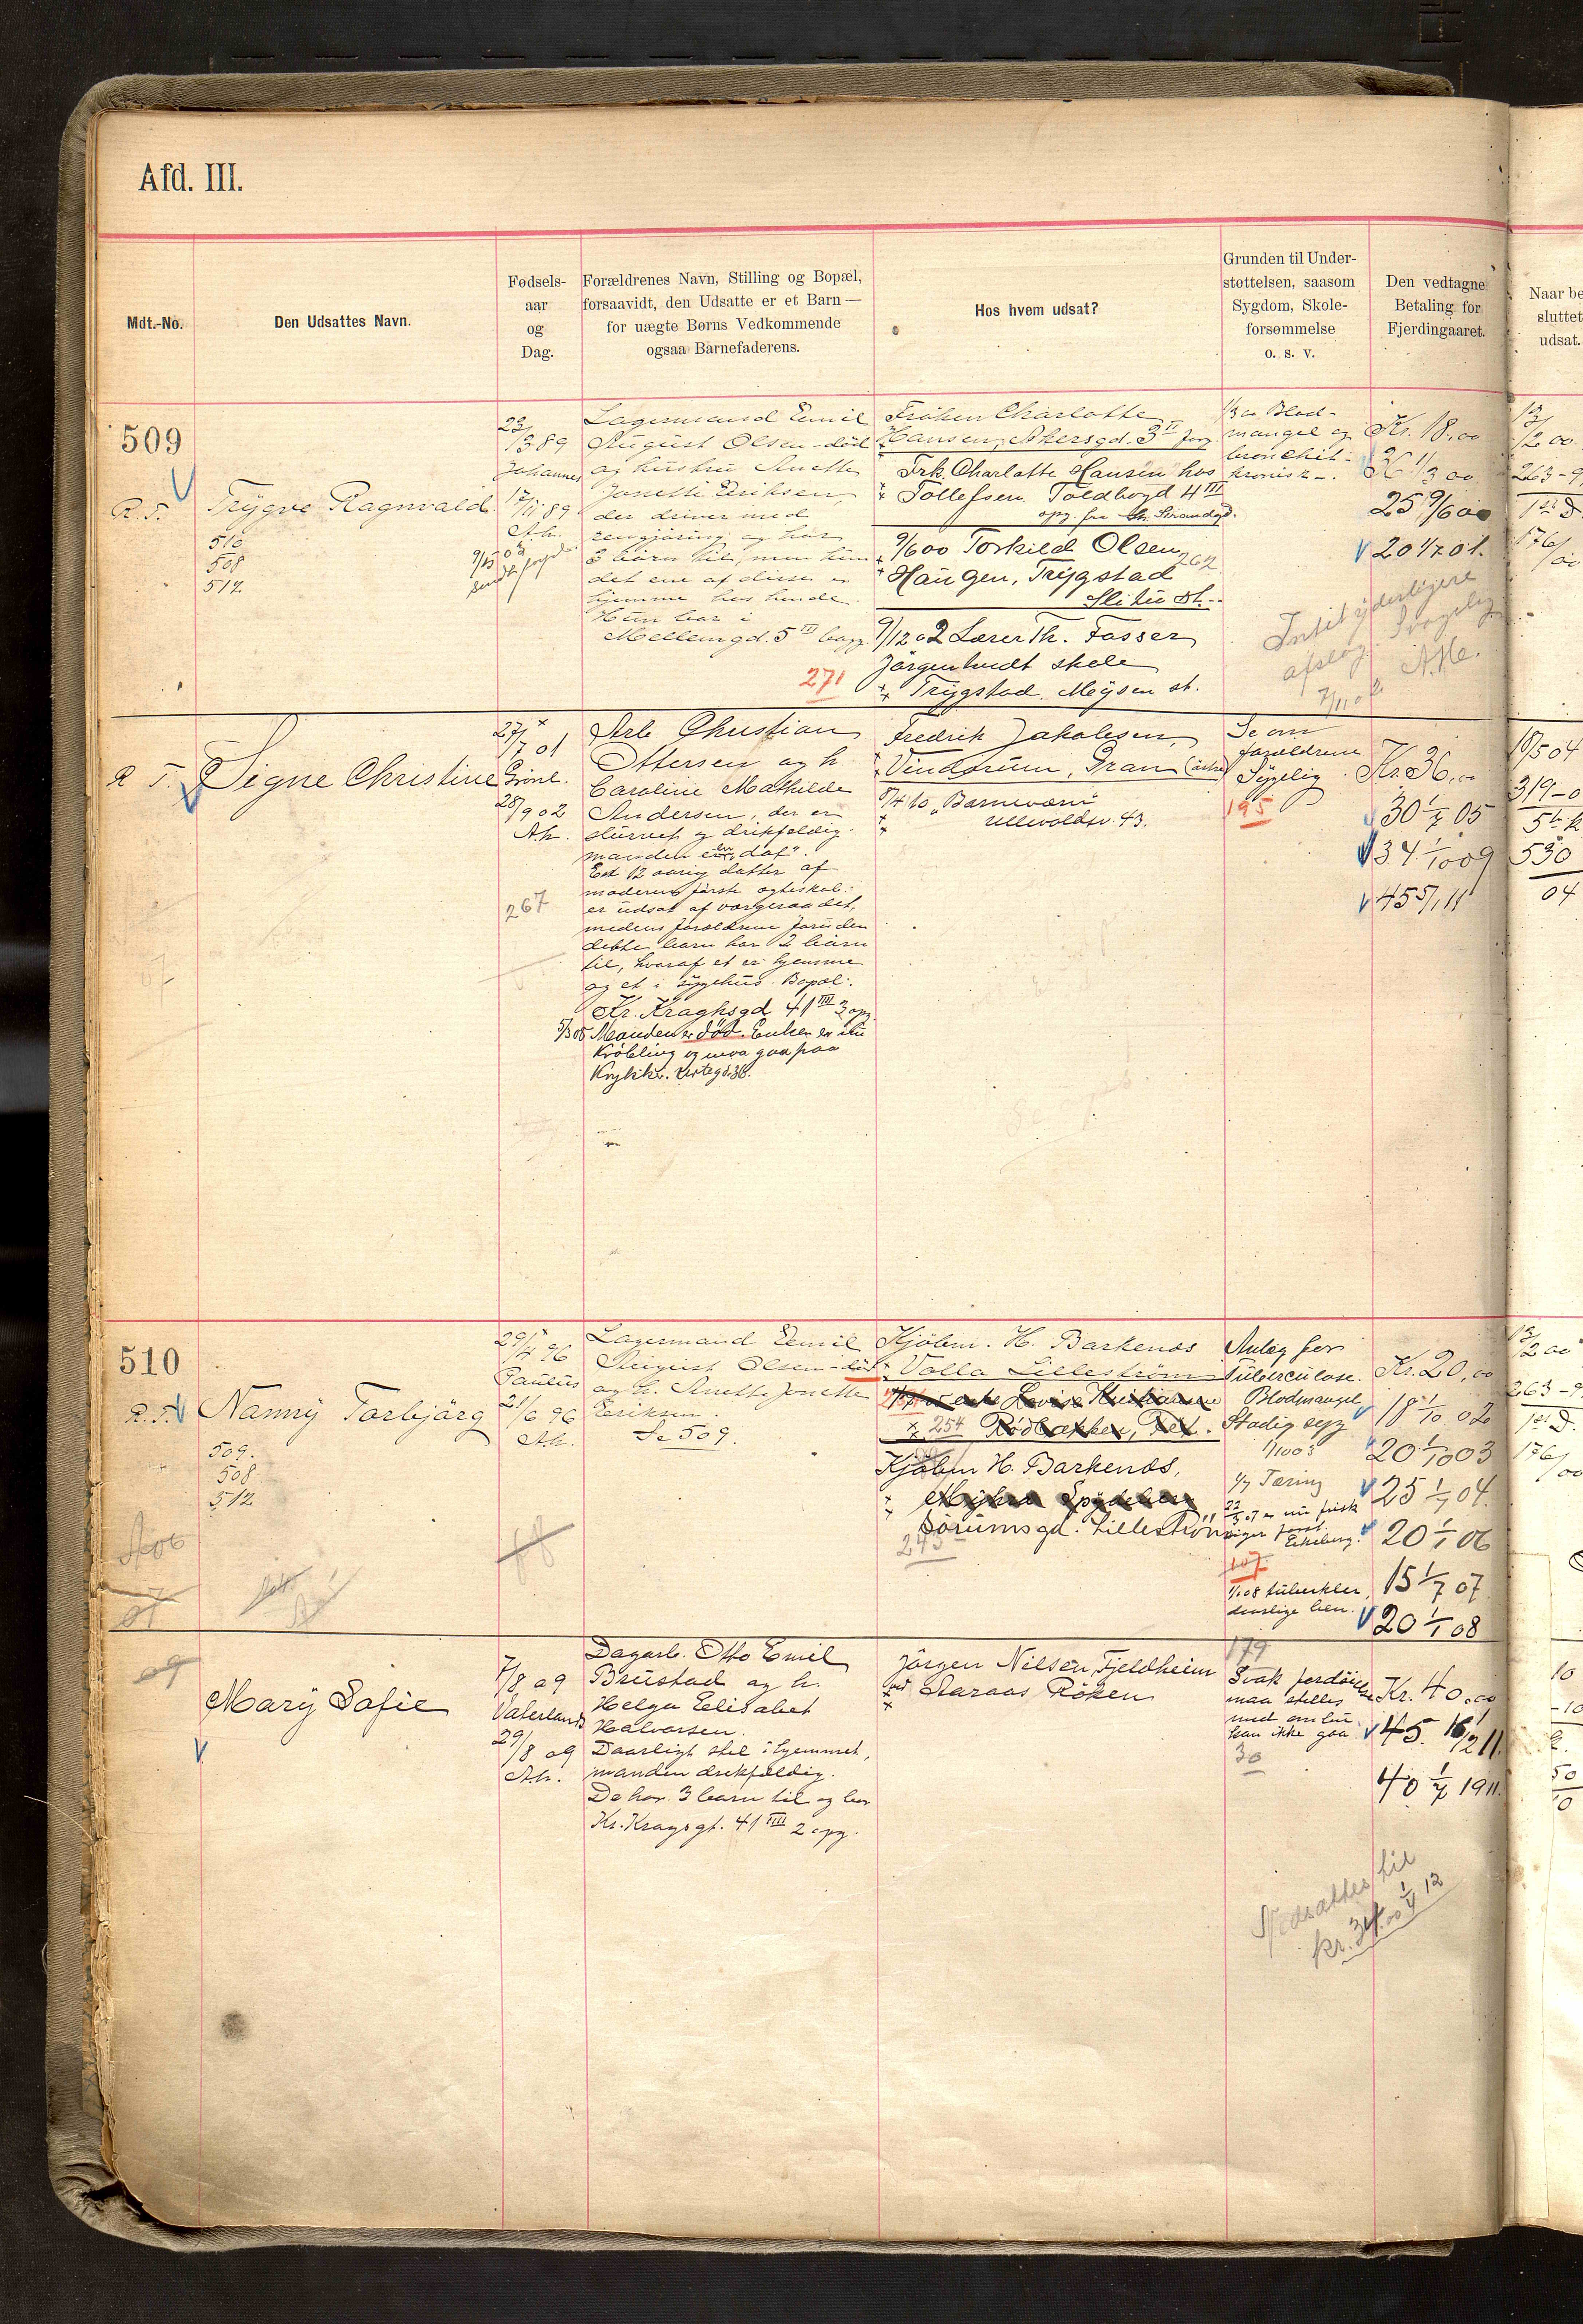 Afd. III.
Mdt.-No.
Den Udsattes Navn.
Fødsels-
aar
og
Dag.
Forældrenes Navn, Stilling og Bopæl,
forsaavidt, den Udsatte er et Barn —
for uægte Børns Vedkommende
ogsaa Barnefaderens.
Hos hvem udsat?
Grunden til Under-
støttelsen, saasom
Sygdom, Skole-
forsømmelse
o. s. v.
Den vedtagne
Betaling for
Fjerdingaaret.
Naar be
sluttet
udsat.
509
R. T.
Trygve Ragnvald
510
508
512
23/3 89
Johannes
17/11 89
Ah.
Lagermand Emil
August Olsen - död
og hustru Anette
Jonette Eriksen
der driver med
rengjöring og har
3 börn til, men kun
det ene af disse er
hjemme hos hende.
Hun bor i
Mellemgd. 5 III bagg.
271
Fröken Charlotte
Hansen, Akersgd. 3 II forg.
Frk. Charlotte Hansen hos
Tollefsen Toldbogd 4 III
opg. fra St. Strandgd.
9/6 00 Torkild Olsen
262
Haugen, Trygstad
Slitu st.
9/12 02 Lærer Th. Fosser
Jörgentvedt skole
Trygstad. Mysen st.
1/3 00 Blod-
mangel og
bronchit
kronisk.
Kr. 18,00
26 1/3 00
25 9/6 00
20 1/7 01.
Intet yderligere
afslag. Svagelig
A.M.
7/11 0
13/2 00
263-9
1ste D.
17 6/00
R. T.
Signe Christine
27/7 01
Grönl.
28/9 02
Ah.
267
Arb. Christian
Ottersen og h
Caroline Mathilde
Andersen, der er
slurvet og drikfældig.
manden er "daf".
Et 12 aarig datter af
moderens förste ægteskab
er udsat af værgeraadet,
medens forældrene foruden
dette barn har 2 börn
til, hvoraf et er hjemme
og et i sygehus. Bopæl:
Kr. Kraghsgd 41 III 3 opg.
5/3 05 Manden er död. Enken er en
Kröbling og maa gaa paa
Krykke. Urtegd. 36.
Fredrik Jakobsen,
Vindorum, Gran (østre)
8/4 10 "Barneværn"
Ullevoldsv. 43.
Se om
forældrene
Sygelig.
195
Kr. 36,00
30 1/7 05
34 1/10 09
45 5/1 11
18/5 04
319-0
5te k
530
04
510
R. T.
Nanny Torbjörg
509.
508
512
29/4 96
Paulus
21/6 96
Ah.
Lagermand Emil
August Olsen - död
og h. Anette Jonette
Eriksen.
Se 509.
Kjöbm. H. Barkenæs
Volla Lilleström
254
Kjöbm H. Barkenæs,
Sörumsgd. Lilleström
243
Anlæg for
Tuberculose.
Blodmangel
Stadig syg
1/10 03
1/7 Tæring
22/5 07 er nu frisk
siger forst.
Eikeberg.
107.
1/1 08 tuberkler,
daarlige ben.
Kr. 20,00
18 1/10 02
20 1/10 03
25 1/1 04.
20 1/1 06
15 1/7 07
20 1/1 08
13/2 00
263-9
1ste D.
17 6/00
09
Mary Sofie
7/8 09
Vaterland
29/8 09
Ah.
Dagarb. Otto Emil
Brustad og h.
Helga Elisabet
Halvorsen.
Daarligt stel i hjemmet,
manden drikfældig.
De har 3 barn til og bor
Kr. Kragsgt. 41 III 2 opg.
Jörgen Nilsen, Fjeldheim
ved Aaraas Röken
179
Svak fordöielse
maa stelles
med om
kan ikke gaa.
30
Kr. 40,00
45. 16/2 11.
40 1/7 1911.
Nedsattes til
kr. 34.00 1/4 12